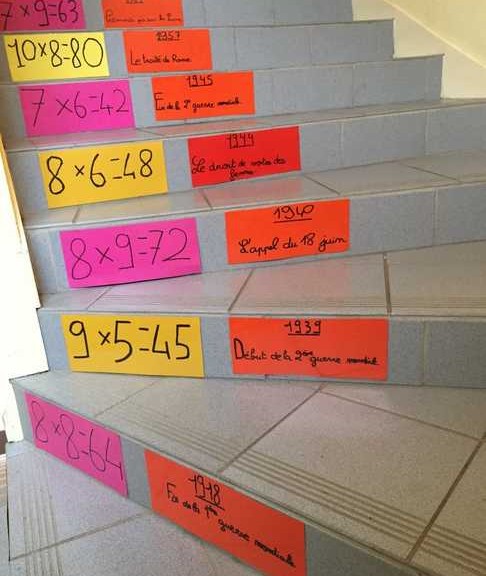 7×9=63
10×8=80
1957
Le traité de Rome
7×6=42
1945
Fin de la 2e guerre mondiale
8×6=48
1944
Le droit de votes des
femmes
8×9=72
1940
L'appel du 18 juin
9×5=45
1939
Début de la 2ème guerre mondiale
8×8=64
1918
Fin de la 1ère
guerre mondiale